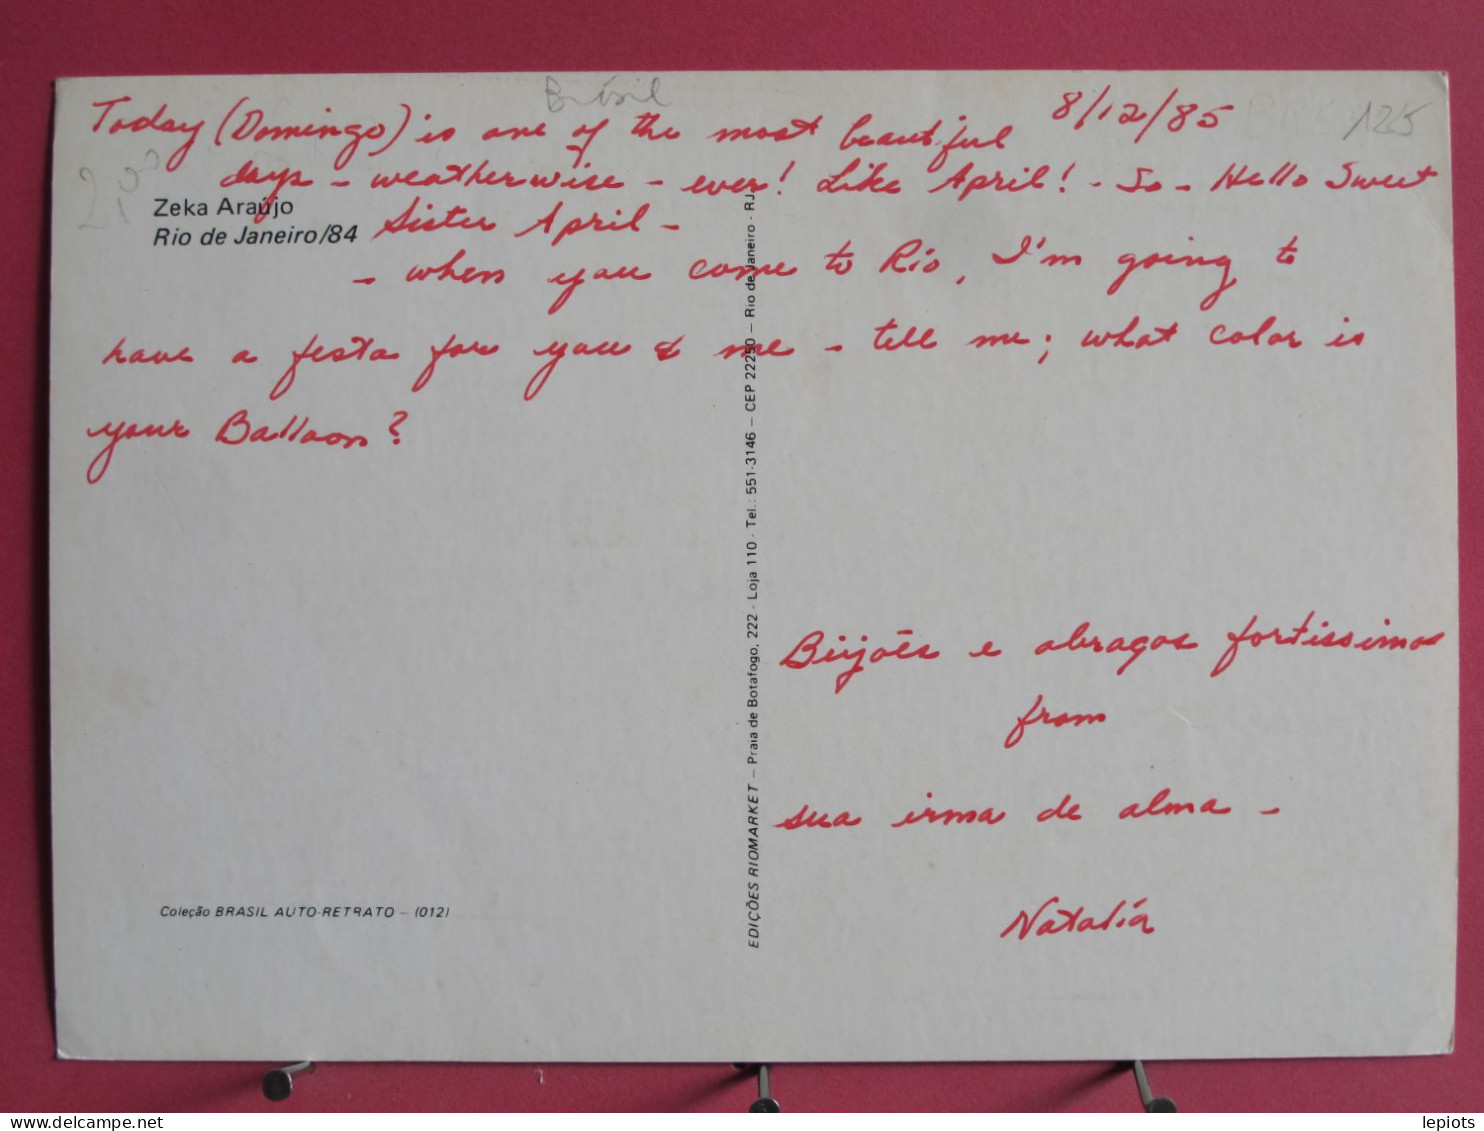 Brasil
8/12/85
125
Today (Domingo) is one of the most beautiful
days - weatherwise - ever! Like April! - So - Hello Sweet
Sister April -
Zeka Araújo
Rio de Janeiro/84
- when you come to Rio, I'm going to
have a festa for you & me - tell me; what color is
your Balloon?
Beijões e abraços fortissimos
from
sua irma de alma -
Natalía
Coleção BRASIL AUTO-RETRATO – (012)
EDIÇÕES RIOMARKET – Praia de Botafogo, 222 - Loja 110 - Tel.: 551-3146 – CEP 22250 – Rio de Janeiro - RJ
delcampe.net
lepiots